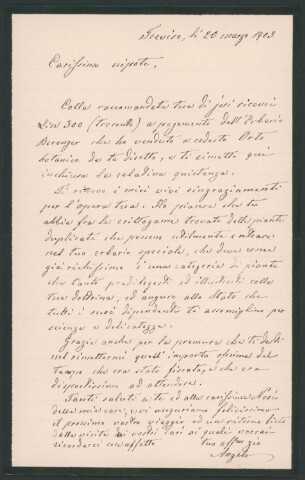 Treviso, li 20 marzo 1903
Carissimo nipote,
Colla raccomandata tua di jeri ricevei
Lire 300 (trecento) a pagamento dell'Erbario
Berenger che ho venduto a codesto Orto
botanico da te diretto, e ti rimetto qui
inchiusa la relativa quietanza.
Ti rinnovo i miei vivi ringraziamenti
per l'opera tua. Mi piace che tu
abbia fra le crittogame trovato delle piante
duplicate che possono utilmente entrare
nel tuo erbario speciale, che deve essere
già ricchissimo è una categoria di piante
che tanto prediligesti ed illustrasti colla
tua dottrina, ed auguro allo Stato che
tutti i suoi dipendenti ti assomiglino per
scienza e delicatezza.
Grazie anche per la premura che ti desti
nel rimettermi quell'importo prima del
tempo che era stato fissato, e che era
dispostissimo ad attendere.
Tanti saluti a te ed alla carissima
della mia cari, e vi auguriamo felicissimo
il prossimo vostro viaggio ed un ritorno lieto
della visita ai vostri cari ai quali vorrai
ricordarci con affetto
tuo affmo zio
Angelo